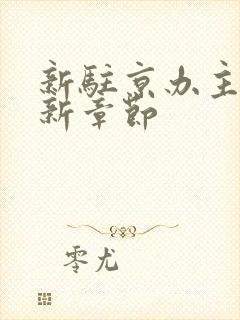 新駐京办主
新章節
零尤